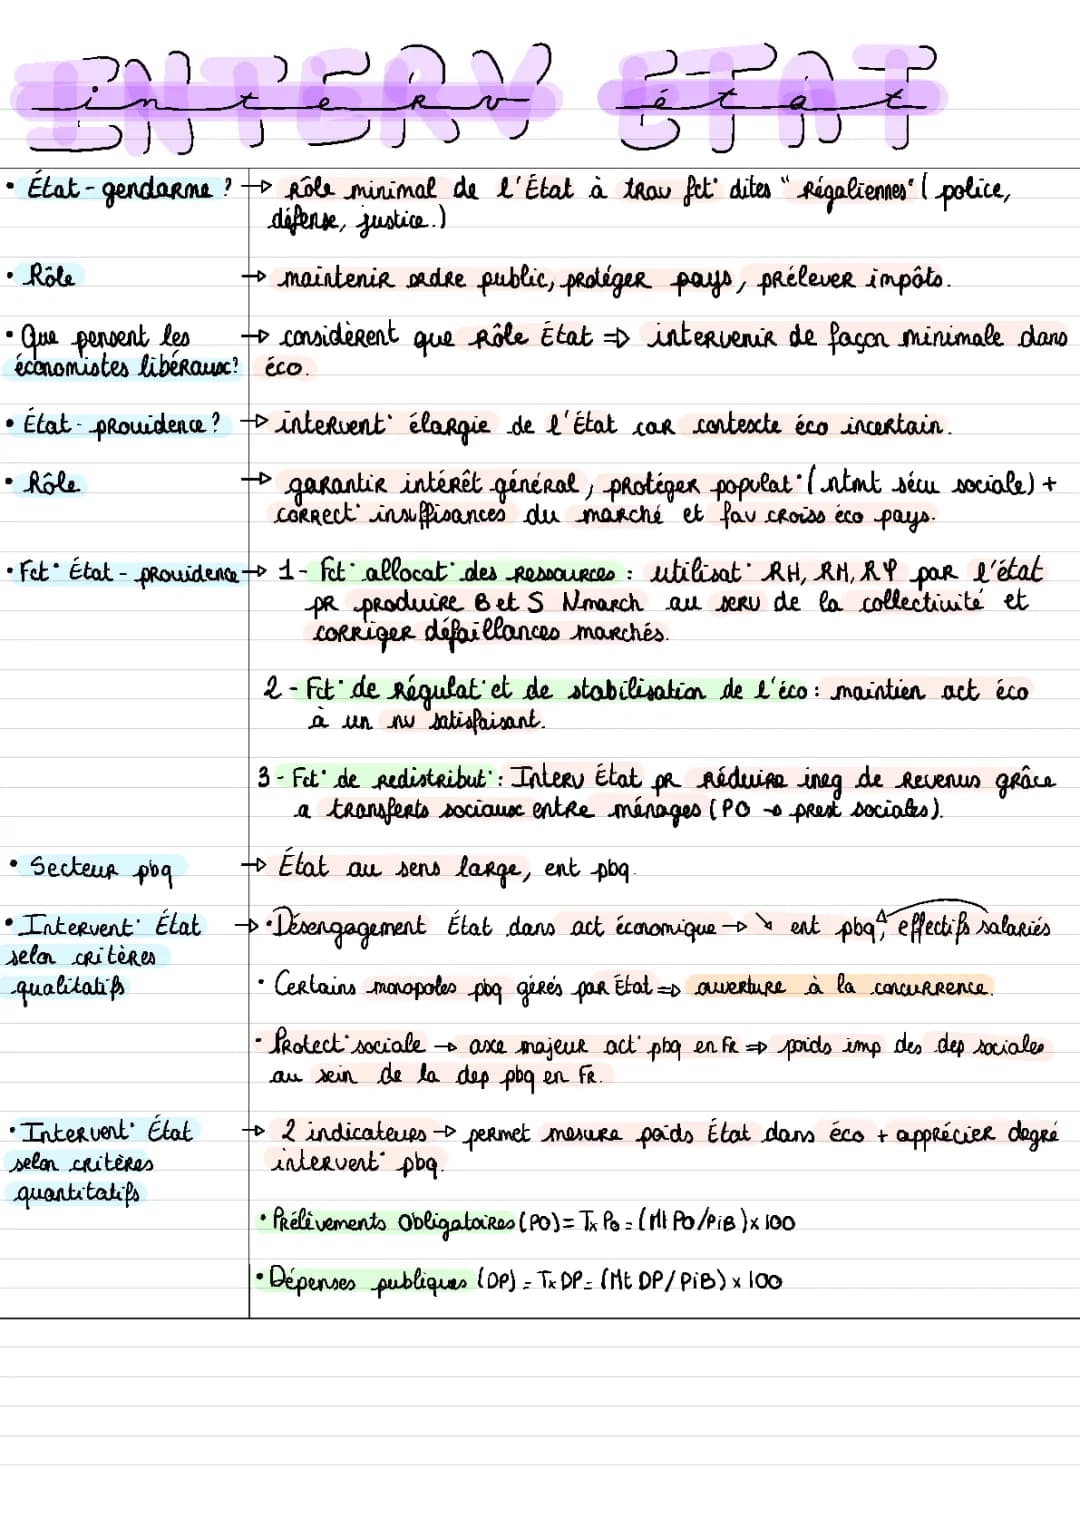 INTERV ÉTAT
interv état
• État - gendarme ? → Rôle minimal de l'État à trav fct° dites "Régaliennes" (police,
défense, justice.)
• Rôle → maintenir ordre public, protéger pays, prélever impôts.
• Que pensent les → considèrent que Rôle État ⇒ intervenir de façon minimale dans
économistes libéraux? éco.
• État - providence ? → intervent° élargie de l'État car contexte éco incertain.
• Rôle → garantir intérêt général, protéger populat° (ntmt sécu sociale) +
correct° insuffisances du marché et fav croiss éco pays.
• Fct° État - providence → 1 - Fct° allocat° des ressources : utilisat° RH, RM, RF par l'état
pr produire B et S Nmarch au serv de la collectivité et
corriger défaillances marchés.
2 - Fct° de régulat° et de stabilisation de l'éco : maintien act éco
à un nv satisfaisant.
3 - Fct° de redistribut° : Interv État pr Réduire ineg de Revenus grâce
a transferts sociaux entre ménages (PO → prest sociales).
• Secteur pbq → État au sens large, ent pbq.
• Intervent° État → • Désengagement État dans act économique → ↘ ent pbq, effectifs salariés
selon critères
qualitatifs • Certains monopoles pbq gérés par État ⇒ ouverture à la concurrence.
• Protect° sociale → axe majeur act° pbq en FR ⇒ poids imp des dep sociales
au sein de la dep pbq en FR.
• Intervent° État → 2 indicateurs → permet mesure poids État dans éco + apprécier degré
selon critères intervent° pbq.
quantitatifs
• Prélèvements Obligatoires (PO) = Tx Po = (Mt Po/PiB) x 100
• Dépenses publiques (DP) = Tx DP = (Mt DP/PiB) x 100